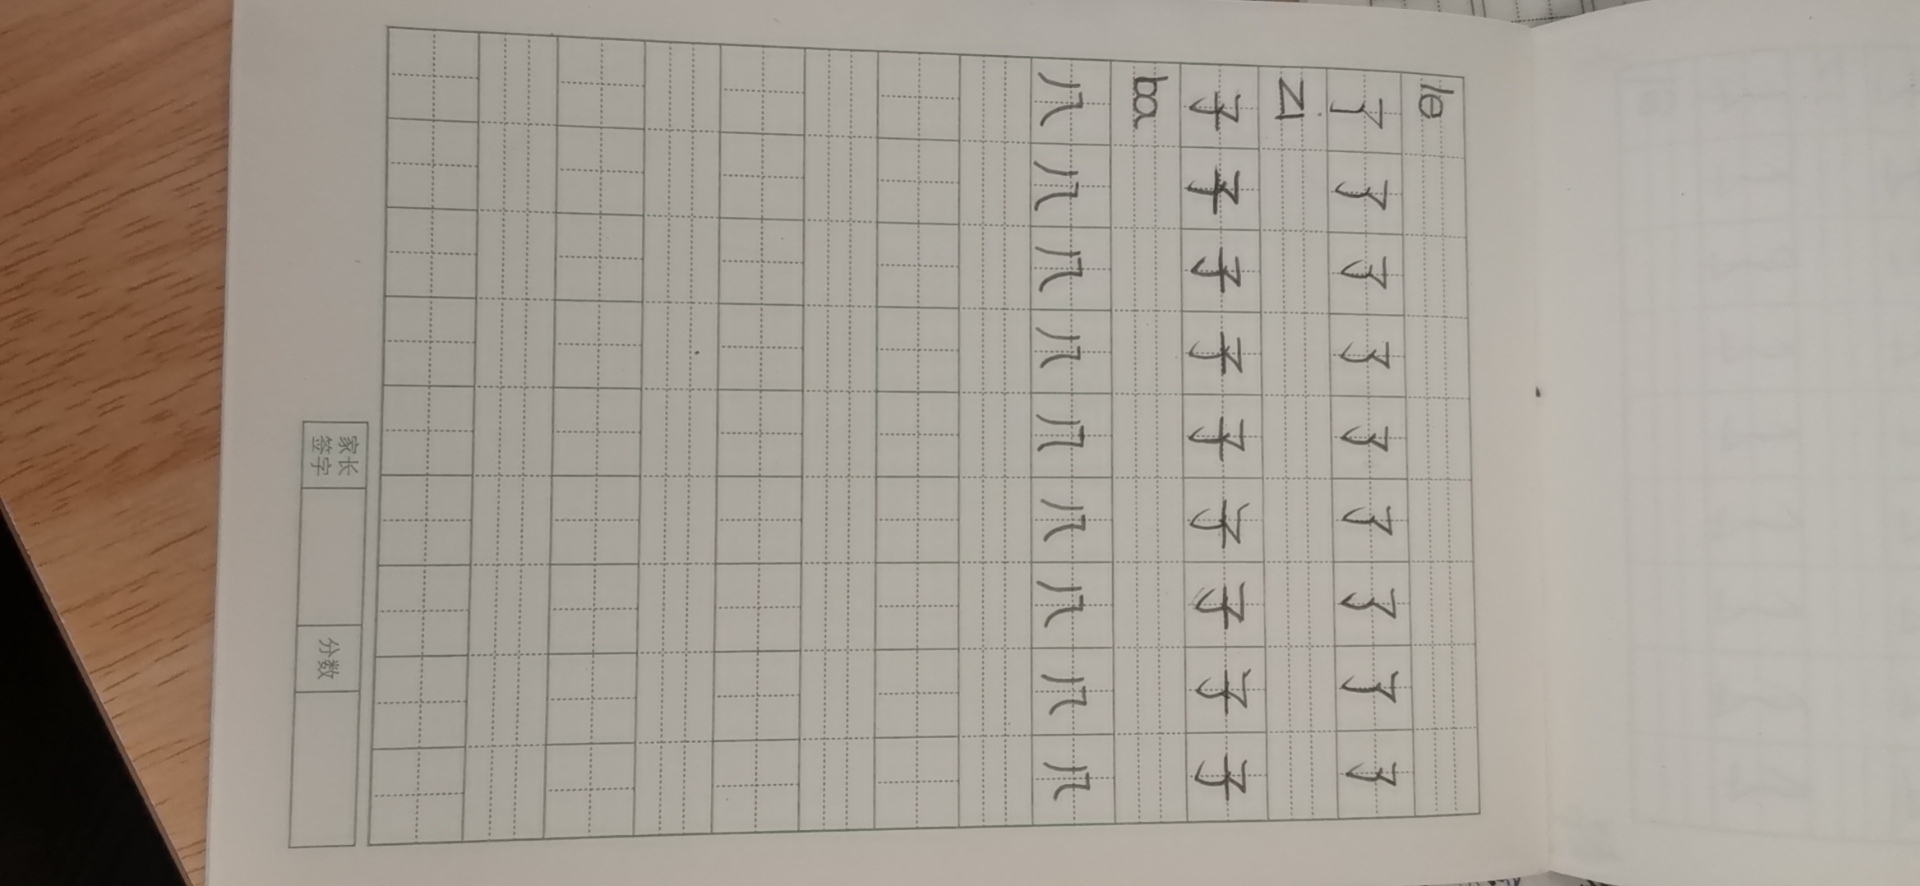 le
了了了了了了了了了
zi
子子子子子子子子子
ba
八八八八八八八八八
家长签字 分数